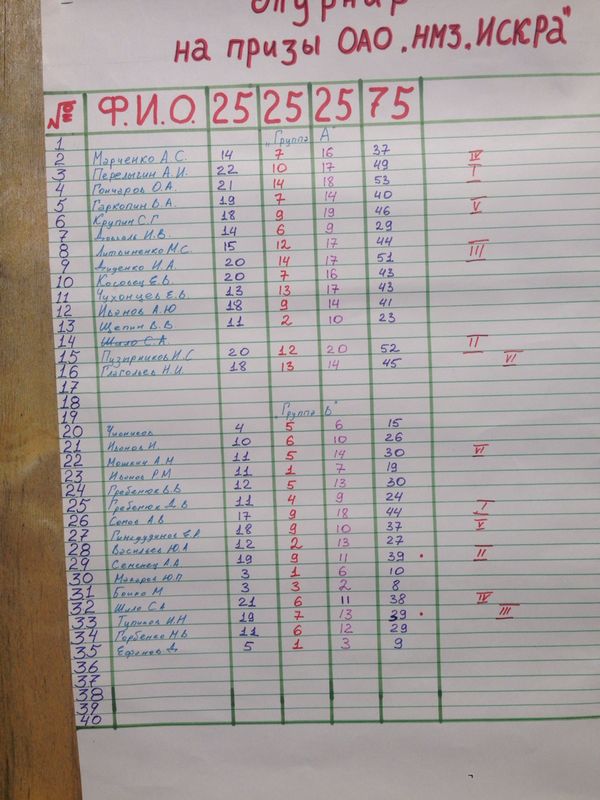 Турнир
на призы ОАО „НМЗ. ИСКРА"
№ Ф.И.О. 25 25 25 75
1 „Группа А"
2 Марченко А.С. 14 7 16 37 IV
3 Перелыгин А.И. 22 10 17 49 I
4 Гончаров О.А. 21 14 18 53
5 Гаркопин В.А. 19 7 14 40 V
6 Крупин С.Г 18 9 19 46
7 И.В. 14 6 9 29
8 Литвиненко М.С. 15 12 17 44 III
9 Диденко И.А. 20 14 17 51
10 Косовец Е.В. 20 7 16 43
11 Чухонцев Е.В. 13 13 17 43
12 Иванов А.Ю 18 9 14 41
13 Щепин В.В 11 2 10 23
14 Шило С.А.
15 Пузырников И.С 20 12 20 52 II
16 Глагольев Н.И. 18 13 14 45 VI
17
18
19 „Группа Б"
20 4 5 6 15
21 Иванов И. 10 6 10 26
22 Мошкин А.М 11 5 14 30 VI
23 Иванов Р.М 11 1 7 19
24 Гребенюк В.В 12 5 13 30
25 Гребенюк Д.В 11 4 9 24
26 Сопов А.В 17 9 18 44 I
27 Е.Р 18 9 10 37 V
28 Васильев Ю.А 12 2 13 27
29 Семенец А.А 19 9 11 39 • II
30 Макаров Ю.П 3 1 6 10
31 Бойко М 3 3 2 8
32 Шило С.А 21 6 11 38 IV
33 Тупиков И.Н 19 7 13 39 • III
34 Горбенко М.В 11 6 12 29
35 Ефанов Д. 5 1 3 9
36
37
38
39
40